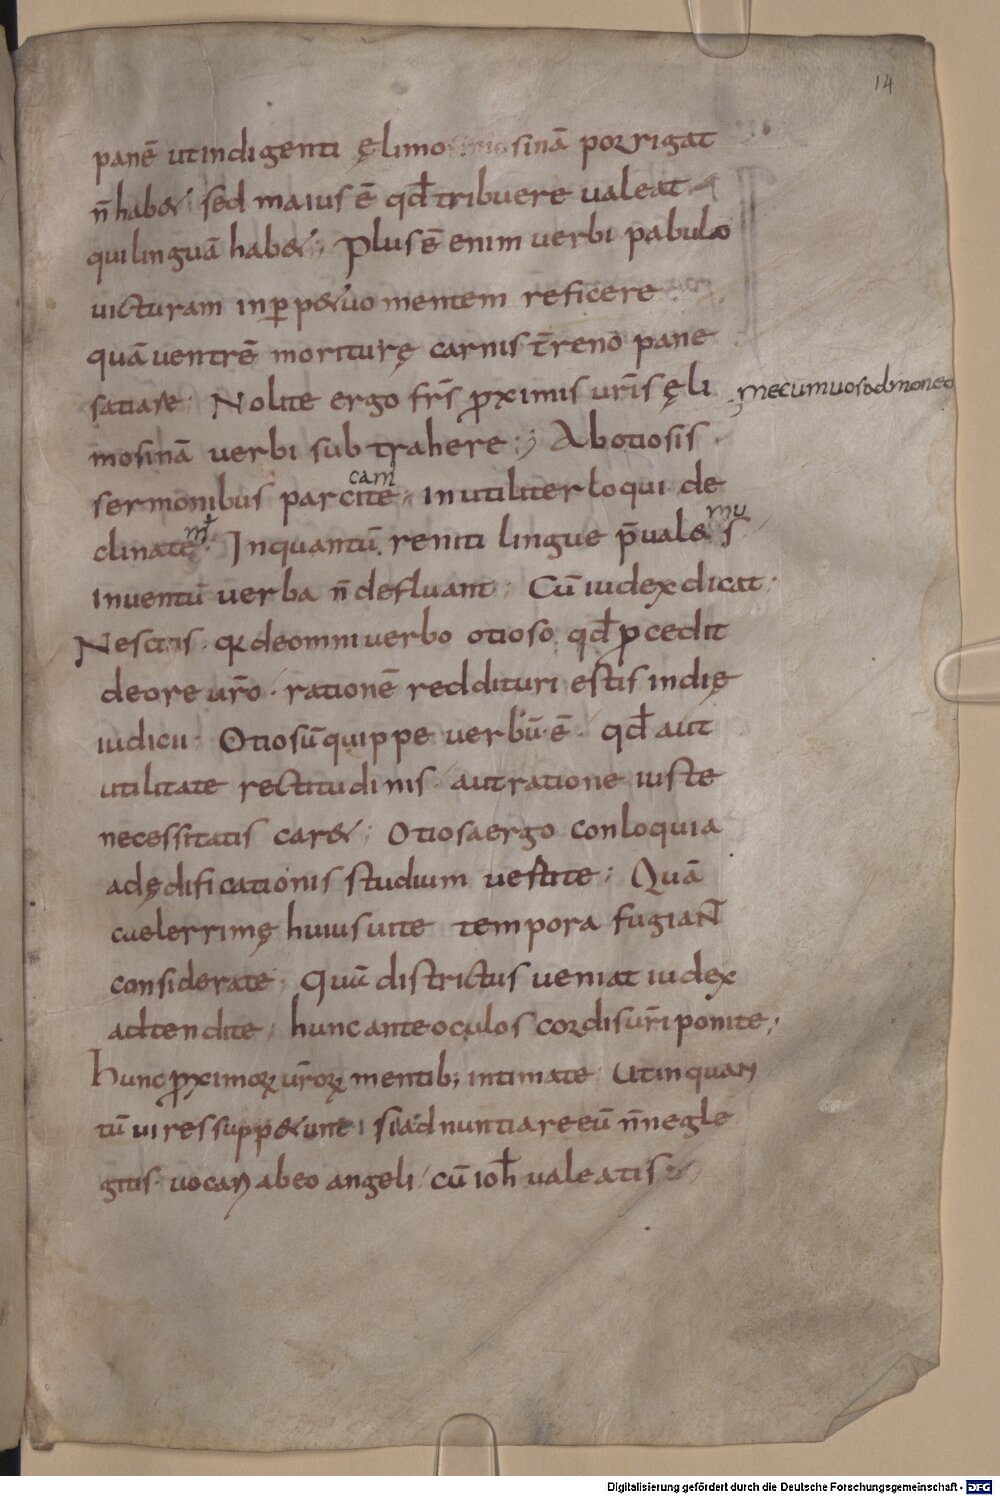 14
panē ut indigenti ęlimo sinā porrigat
n̄ hab&; sed maius ē qđ tribuere valeat
qui linguā hab&; Plus ē enim verbi pabulo
victuram in ꝑp&uo mentem reficere
quā ventrē moriturę carnis t̄reno pane
satiare· Nolite ergo fr̄s ꝓximis vr̄is ęli
mecum uos admoneo
mosinā verbi subtrahere; Ab otiosis
cam
sermonibus parcite· inutiliter loqui de
m̄ mu
clinate· Inquantū reniti lingue p̄val& s
inventū verba n̄ defluant· Cū iudex dicat·
Nescitis· qꝛ de omni verbo otioso qđ ꝓcedit
de ore vr̄o· rationē reddituri estis in dię
iudicii· Otiosū quippe verbū ē· qđ aut
utilitate rectitudinis aut ratione iuste
necessitatis car&; Otiosa ergo conloquia
ad ędificationis studium vestite· Quā
caelerrimę huius uite tempora fugiant
considerate· Quā districtus veniat iudex
adtendite; hunc ante oculos cordis vr̄i ponite;
hunc ꝓximoꝝ vr̄oꝝ mentib; intimate· Ut in quan
tū vires supp&unt si adnuntiare eū n̄ negle
gitis· vocari ab eo angeli cū ioħ valeatis
Digitalisierung gefördert durch die Deutsche Forschungsgemeinschaft - DFG